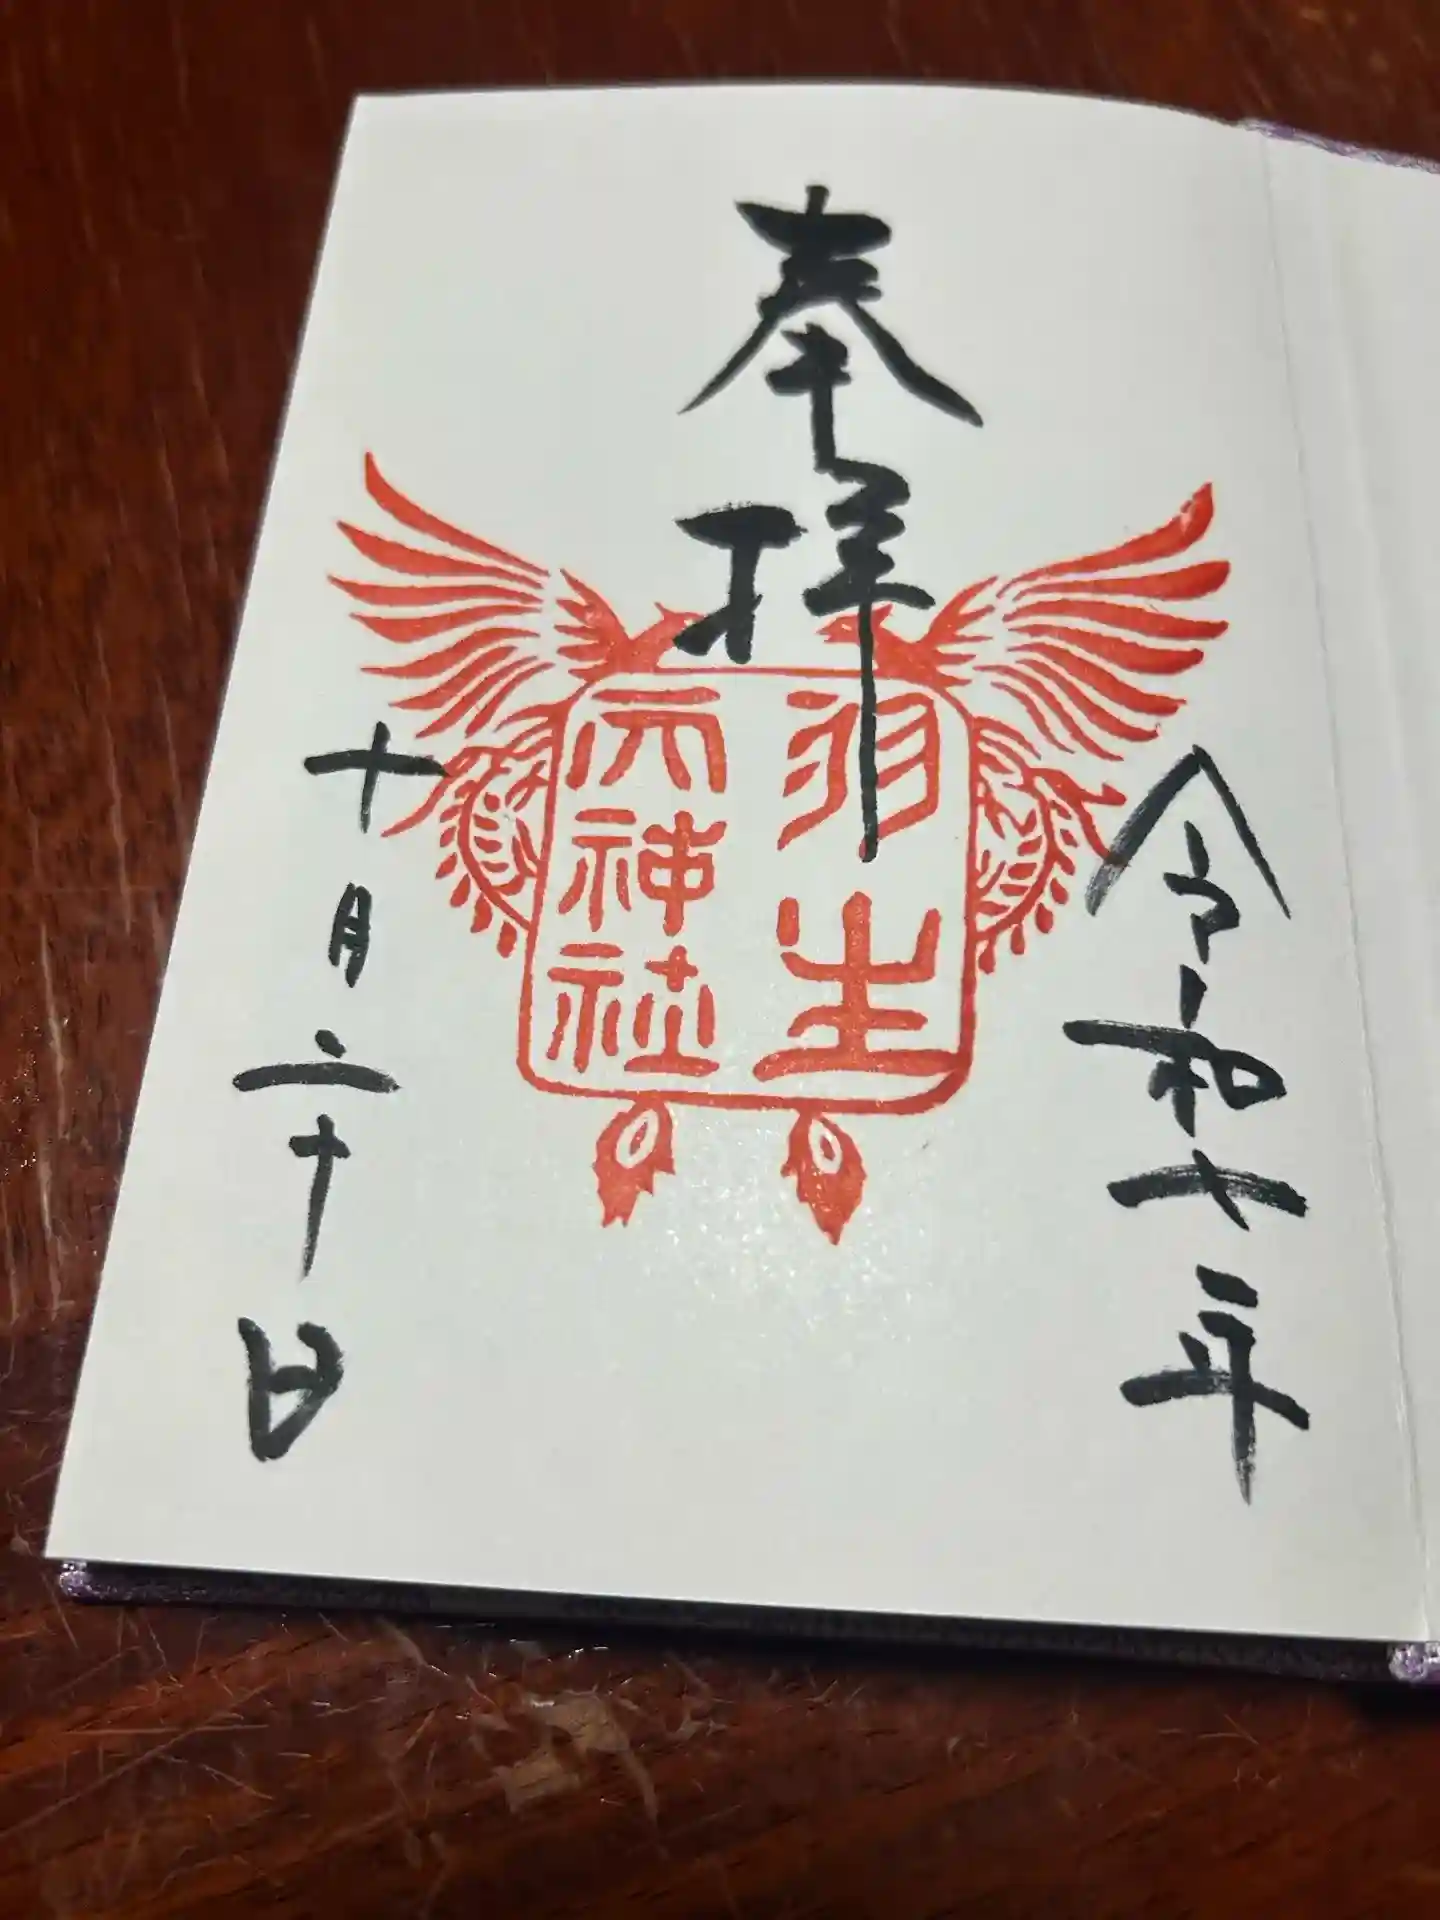 奉拝
令和七年
羽生
天神社
十月二十日